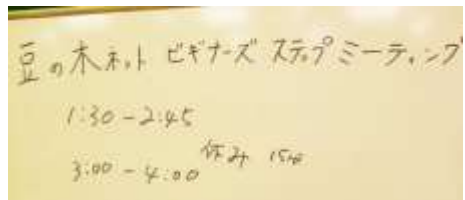 豆の木ネット ビギナーズ ステップ ミーティング
1:30 - 2:45
休み 15分
3:00 - 4:00